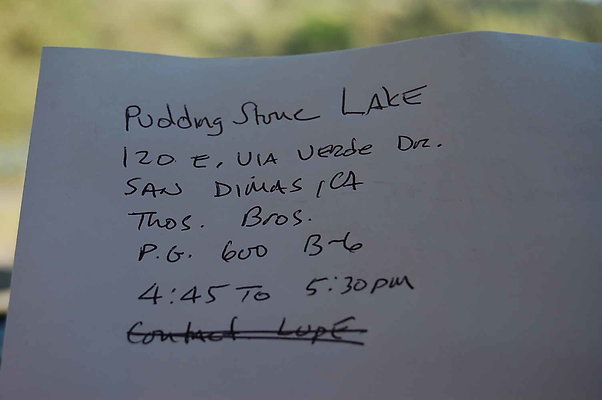 Pudding Stone LAKE
120 E. VIA VERDE DR.
SAN DIMAS, CA
Thos. Bros.
P.G. 600 B-6
4:45 TO 5:30pm
Contact LUPE